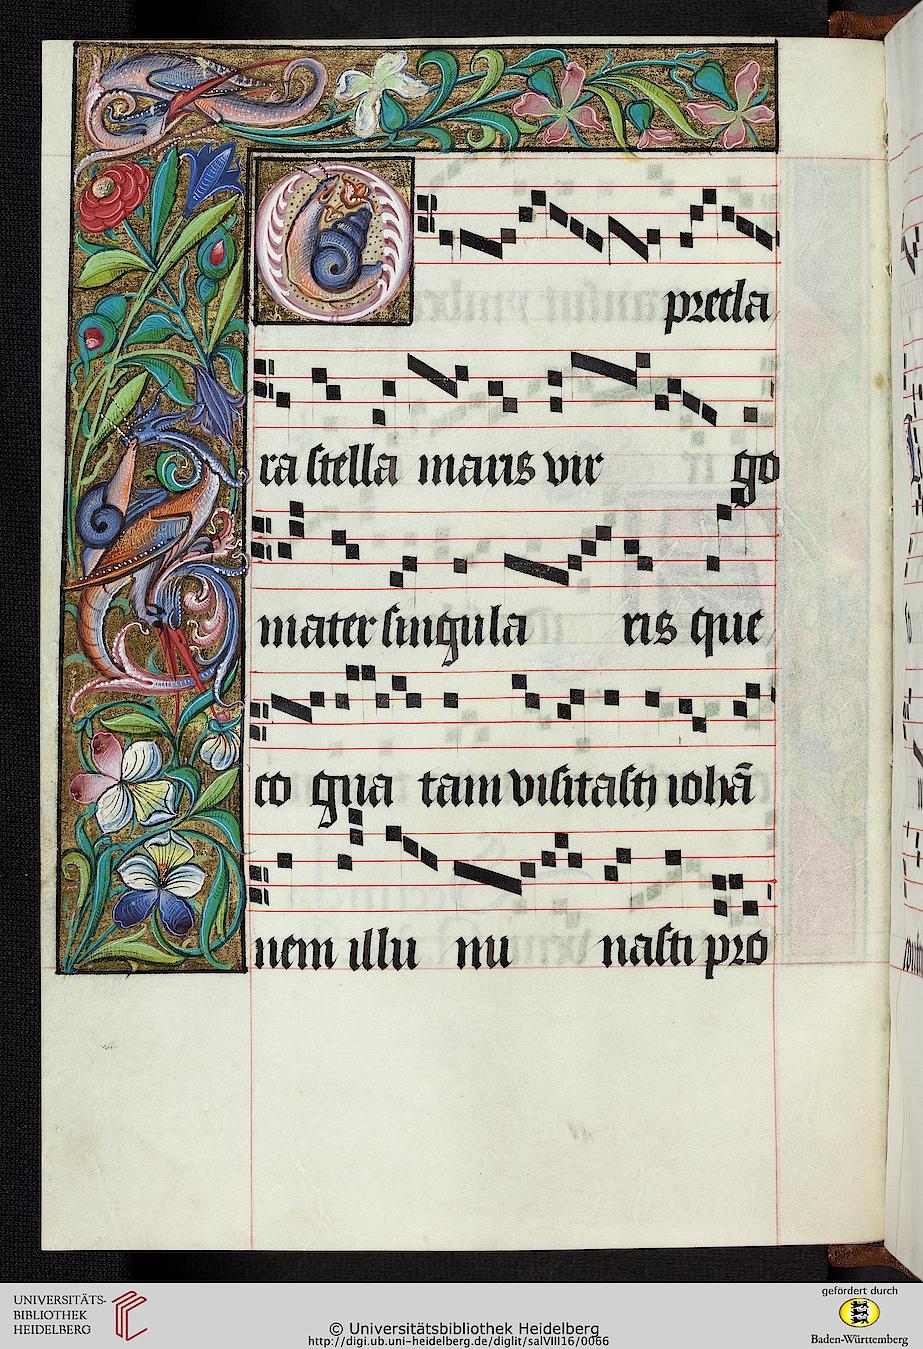 O precla
ra stella maris vir go
mater singula ris que
co gna tam visitasti iohā
nem illu mi nasti pro
UNIVERSITÄTS-
BIBLIOTHEK
HEIDELBERG
© Universitätsbibliothek Heidelberg
http://digi.ub.uni-heidelberg.de/diglit/salVIII16/0066
gefördert durch
Baden-Württemberg